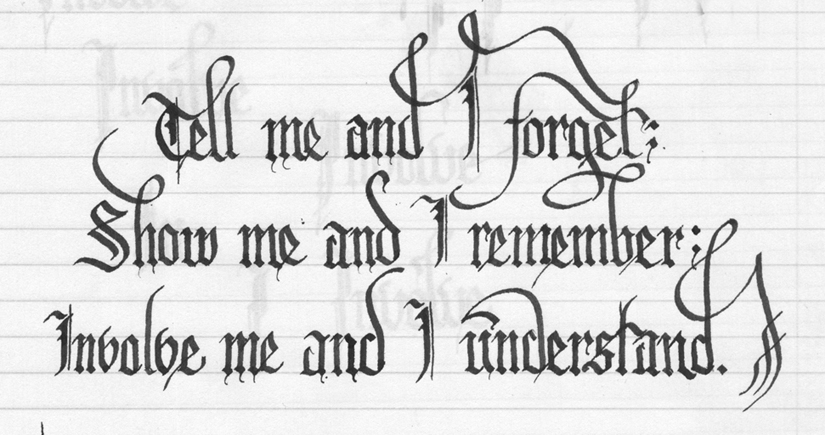 Tell me and I forget;
Show me and I remember;
Involve me and I understand.